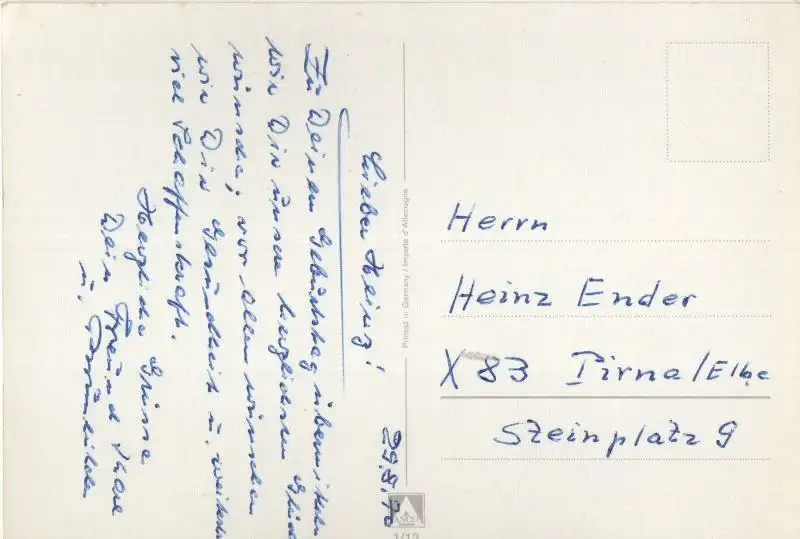 Lieber Heinz!
Zu Deinem Geburtstag übermitteln
wir Dir unsere herzlichsten Glück
wünsche; vor allem wünschen
wir Dir Gesundheit u. weiterhin
viel Schaffenskraft.
Herzliche Grüsse
Dein Freund
u.
Printed in Germany / Importé d'Allemagne
ANCO
1/12
Herrn
Heinz Ender
X 83 Pirna/Elbe
Steinplatz 9